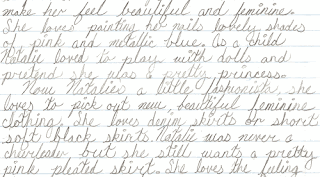 make her feel beautiful and feminine.
She loves painting her nails lovely shades
of pink and metallic blue. As a child
Natalie loved to play with dolls and
pretend she was a pretty princess.
Now Natalies a little fashionista, she
loves to pick out new, beautiful feminine
clothing. She loves denim skirts or short
soft black skirts. Natalie was never a
cheerleader but she still wants a pretty
pink pleated skirt. She loves the fuling